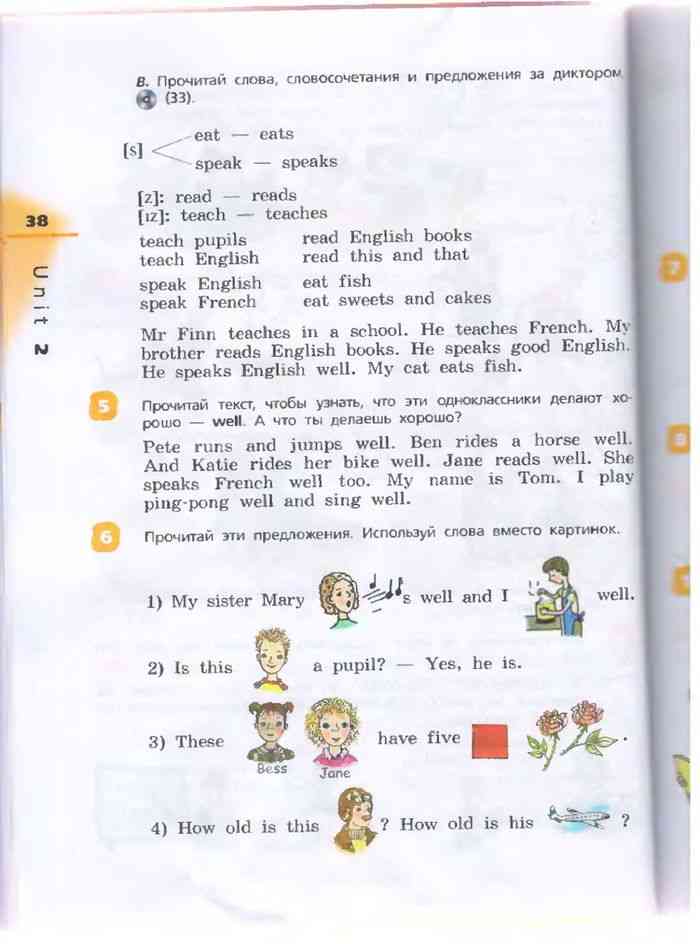 В. Прочитай слова, словосочетания и предложения за диктором.
(33).
[s]
eat — eats
speak — speaks
[z]: read — reads
[ɪz]: teach — teaches
teach pupils read English books
teach English read this and that
speak English eat fish
speak French eat sweets and cakes
Mr Finn teaches in a school. He teaches French. My
brother reads English books. He speaks good English.
He speaks English well. My cat eats fish.
38
Unit 2
5
Прочитай текст, чтобы узнать, что эти одноклассники делают хо-
рошо — well. А что ты делаешь хорошо?
Pete runs and jumps well. Ben rides a horse well.
And Katie rides her bike well. Jane reads well. She
speaks French well too. My name is Tom. I play
ping-pong well and sing well.
6
Прочитай эти предложения. Используй слова вместо картинок.
1) My sister Mary s well and I well.
2) Is this a pupil? — Yes, he is.
3) These have five .
Bess Jane
4) How old is this ? How old is his ?
7
8